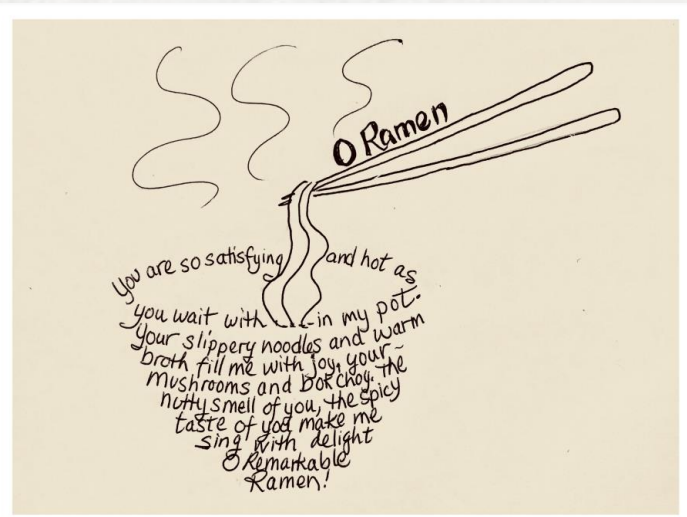 O Ramen
You are so satisfying and hot as
you wait with in my pot.
Your slippery noodles and warm
broth fill me with joy, your
mushrooms and bok choy. The
nutty smell of you, the spicy
taste of you make me
sing with delight
O Remarkable
Ramen!